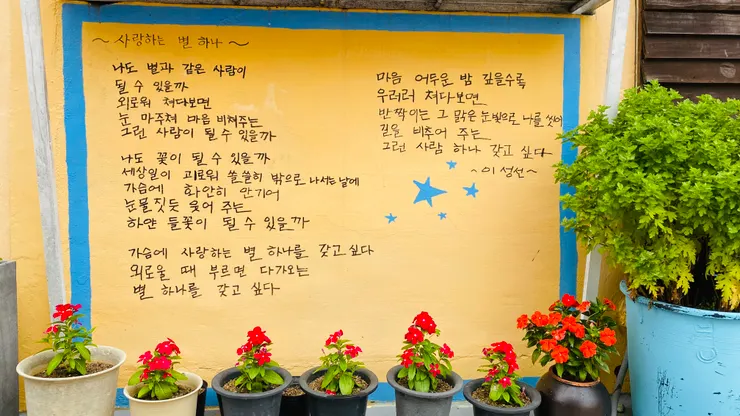 ~ 사랑하는 별 하나 ~
나도 별과 같은 사람이
될 수 있을까
외로워 쳐다보면
눈 마주쳐 마음 비춰주는
그런 사람이 될 수 있을까
나도 꽃이 될 수 있을까
세상일이 괴로워 쓸쓸히 밖으로 나서는 날에
가슴에 화안히 안기어
눈물짓듯 웃어 주는
하얀 들꽃이 될 수 있을까
가슴에 사랑하는 별 하나를 갖고 싶다
외로울 때 부르면 다가오는
별 하나를 갖고 싶다
마음 어두운 밤 깊을수록
우러러 쳐다보면
반짝이는 그 맑은 눈빛으로 나를 씻어
길을 비추어 주는
그런 사람 하나 갖고 싶다
~ 이 성선 ~